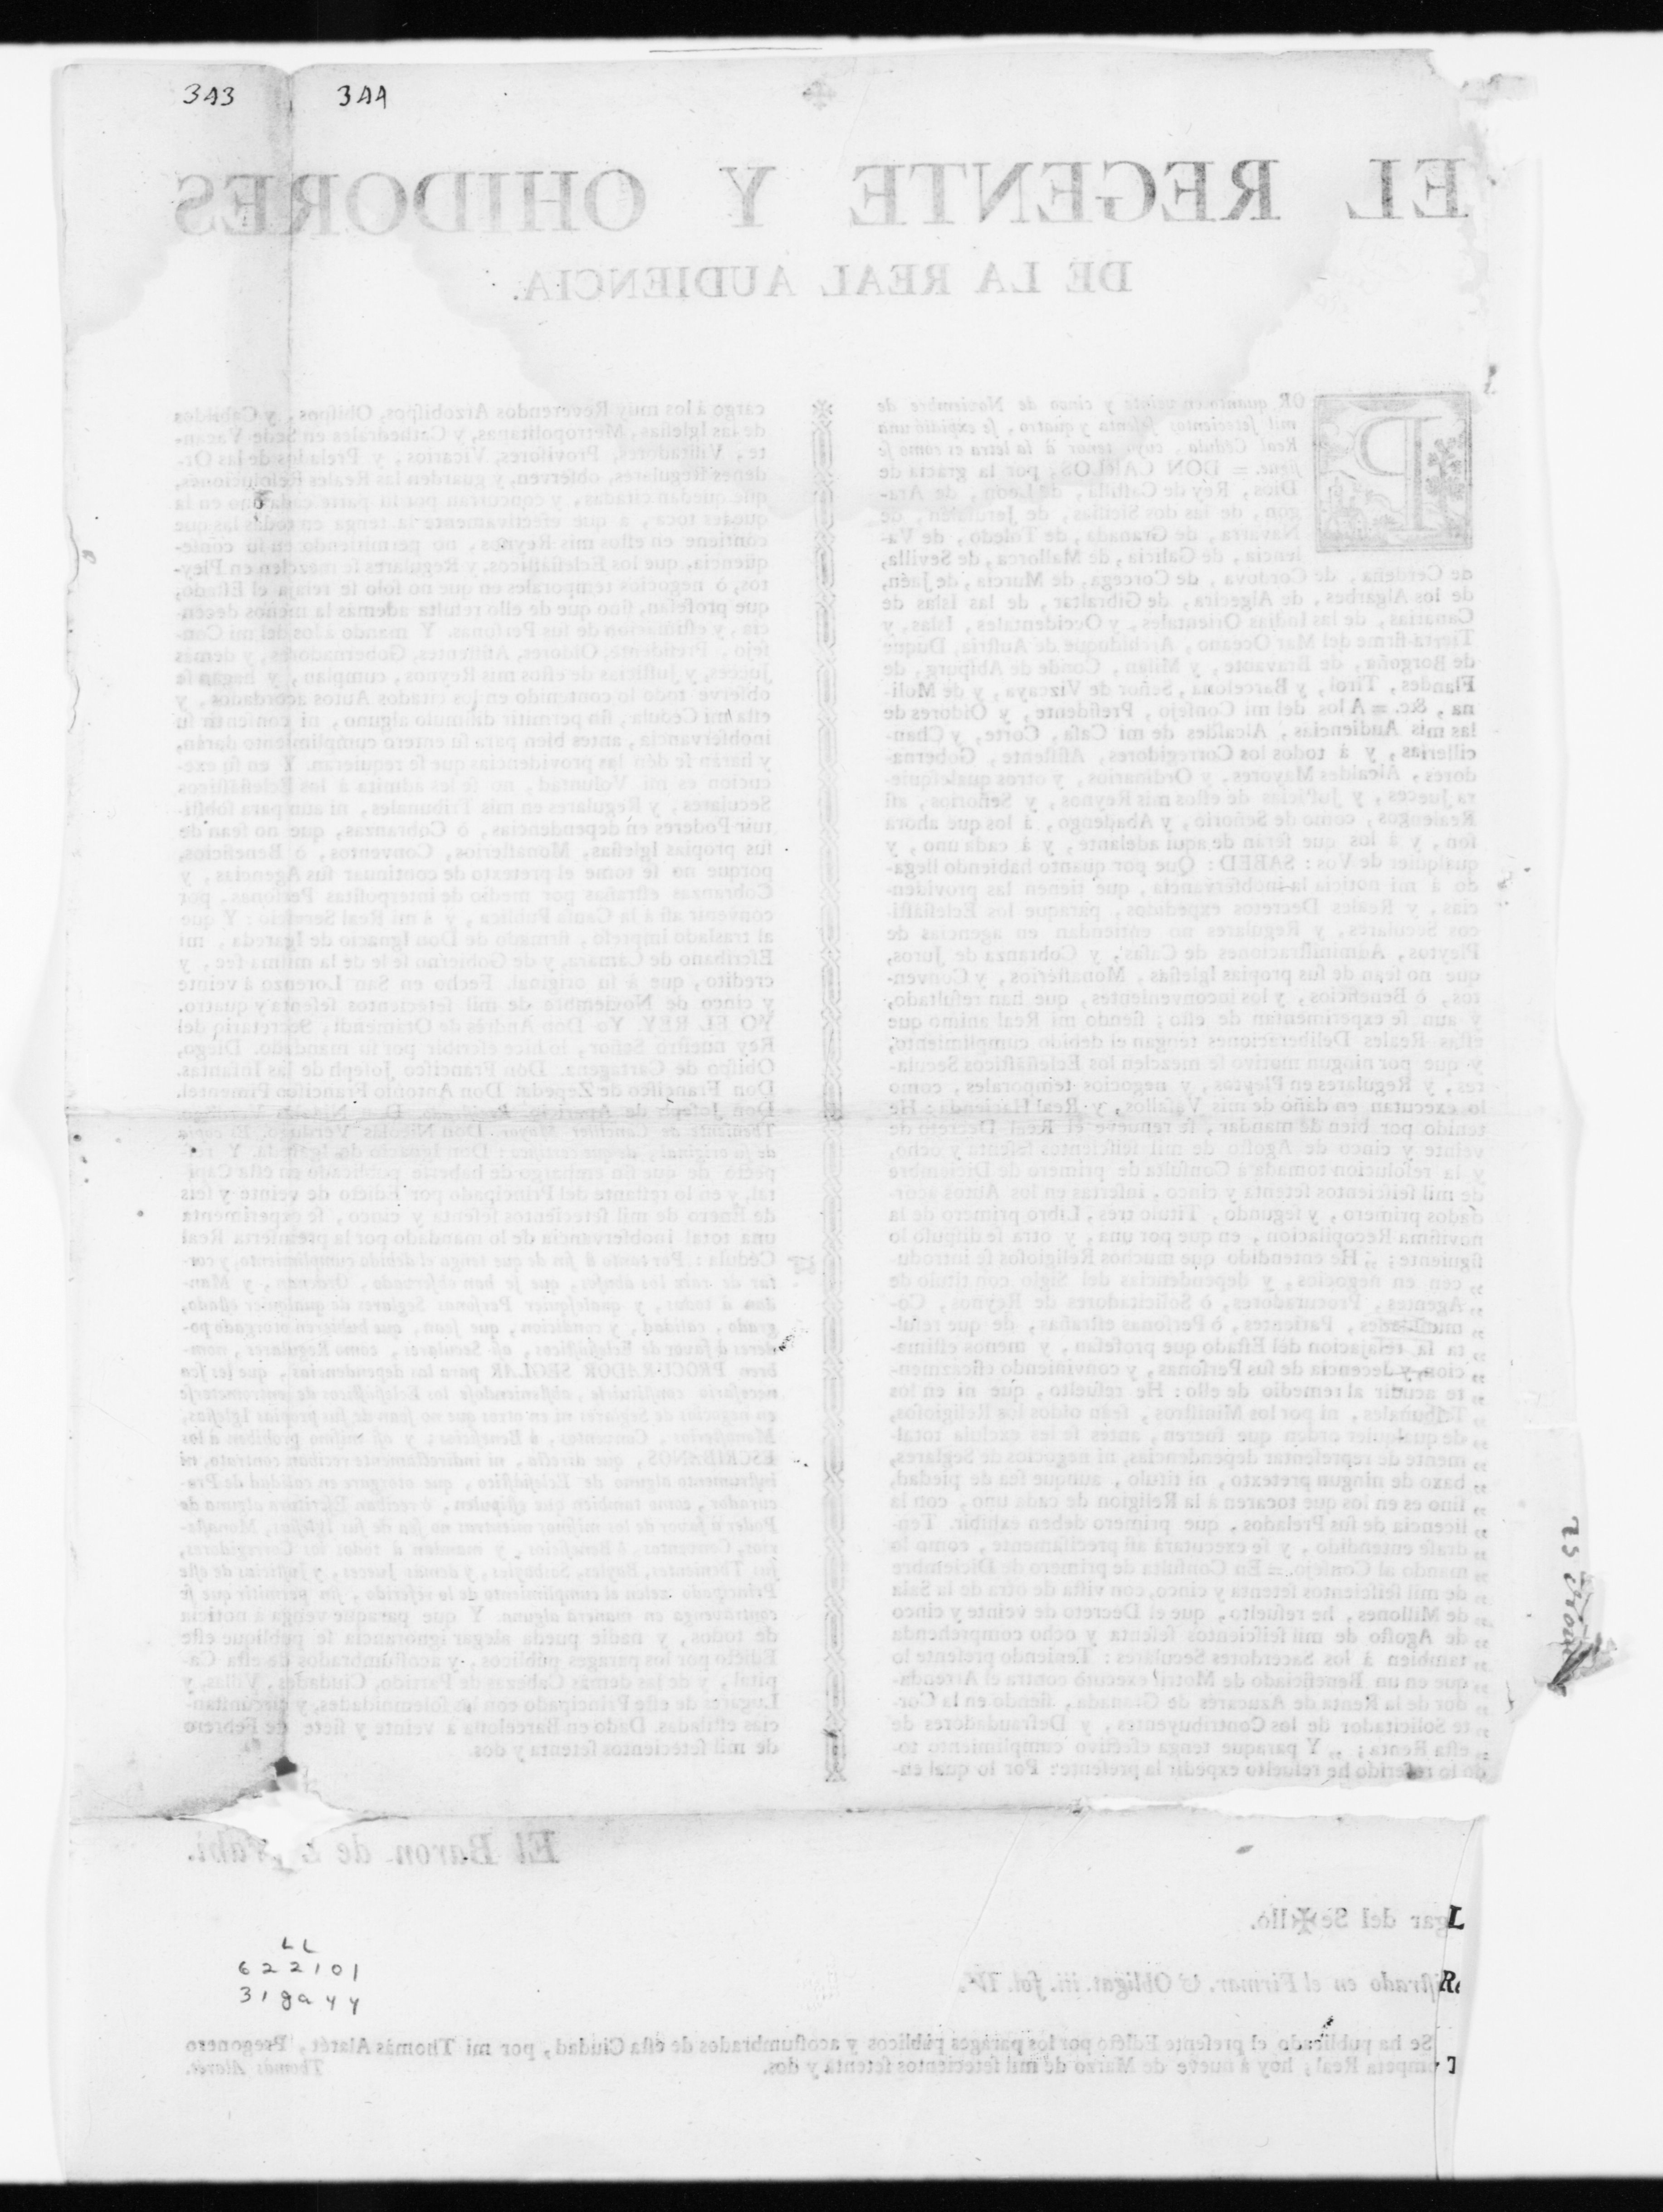 343 344
EL REGENTE Y OHIDORES
DE LA REAL AUDIENCIA.
POR quanto en veinte y cinco de Noviembre de
mil setecientos sesenta y quatro, se expidió una
Real Cédula, cuyo tenor à la letra es como se
sigue. = DON CARLOS, por la gracia de
Dios, Rey de Castilla, de Leon, de Ara-
gon, de las dos Sicilias, de Jerusalén, de
Navarra, de Granada, de Toledo, de Va-
lencia, de Galicia, de Mallorca, de Sevilla,
de Cerdeña, de Cordova, de Corcega, de Murcia, de Jaén,
de los Algarbes, de Algecira, de Gibraltar, de las Islas de
Canarias, de las Indias Orientales, y Occidentales, Islas, y
Tierra-firme del Mar Oceano, Archiduque de Austria, Duque
de Borgoña, de Bravante, y Milan, Conde de Abspurg, de
Flandes, Tirol, y Barcelona, Señor de Vizcaya, y de Moli-
na, &c. = A los del mi Consejo, Presidente, y Oidores de
las mis Audiencias, Alcaldes de mi Casa, Corte, y Chan-
cillerias, y á todos los Corregidores, Asistente, Goberna-
dores, Alcaldes Mayores, y Ordinarios, y otros qualesquie-
ra Jueces, y Justicias de estos mis Reynos, y Señorios, asi
Realengos, como de Señorio, y Abadengo, à los que ahora
son, y à los que serán de aqui adelante, y á cada uno, y
qualquier de Vos: SABED: Que por quanto habiendo llega-
do à mi noticia la inobservancia, que tienen las providen-
cias, y Reales Decretos expedidos, paraque los Eclesiasti-
cos Seculares, y Regulares no entiendan en agencias de
Pleytos, Administraciones de Casas, y Cobranza de Juros,
que no sean de sus propias Iglesias, Monasterios, y Conven-
tos, ò Beneficios, y los inconvenientes, que han resultado,
y aun se experimentan de esto; siendo mi Real animo que
estas Reales Deliberaciones tengan el debido cumplimiento,
y que por ningun motivo se mezclen los Eclesiasticos Secula-
res, y Regulares en Pleytos, y negocios temporales, como
lo executan en daño de mis Vasallos, y Real Hacienda: He
tenido por bien de mandar, se renueve el Real Decreto de
veinte y cinco de Agosto de mil seiscientos sesenta y ocho,
y la resolucion tomada à Consulta de primero de Diciembre
de mil seiscientos setenta y cinco, insertas en los Autos acor-
dados primero, y segundo, Titulo tres, Libro primero de la
novisima Recopilacion, en que por una, y otra se dispuso lo
siguiente; „ He entendido que muchos Religiosos se introdu-
„ cen en negocios, y dependencias del Siglo con titulo de
„ Agentes, Procuradores, ò Solicitadores de Reynos, Co-
„ munidades, Parientes, ò Personas estrañas, de que resul-
„ ta la relajacion del Estado que profesan, y menos estima-
„ cion, y decencia de sus Personas, y conviniendo eficazmen-
„ te acudir al remedio de ello: He resuelto, que ni en los
„ Tribunales, ni por los Ministros, sean oidos los Religiosos,
„ de qualquier orden que fueren, antes se les excluia total-
„ mente de representar dependencias, ni negocios de Seglares,
„ baxo de ningun pretexto, ni titulo, aunque sea de piedad,
„ sino es en los que tocaren à la Religion de cada uno, con la
„ licencia de sus Prelados, que primero deben exhibir. Ten-
„ drase entendido, y se executará asi precisamente, como lo
„ mando al Consejo. = En Consulta de primero de Diciembre
„ de mil seiscientos setenta y cinco, con vista de otra de la Sala
„ de Millones, he resuelto, que el Decreto de veinte y cinco
„ de Agosto de mil seiscientos sesenta y ocho comprehenda
„ tambien á los Sacerdotes Seculares: Teniendo presente lo
„ que en un Beneficiado de Motril executó contra el Arrenda-
„ dor de la Renta de Azucares de Granada, siendo en la Cor-
„ te Solicitador de los Contribuyentes, y Defraudadores de
„ esta Renta; „ Y paraque tenga efectivo cumplimiento to-
do lo referido he resuelto expedir la presente: Por lo qual en-
cargo à los muy Reverendos Arzobispos, Obispos, y Cabildos
de las Iglesias, Metropolitanas, y Cathedrales en Sede Vacan-
te, Visitadores, Provisores, Vicarios, y Prelados de las Or-
denes Regulares, observen, y guarden las Reales Resoluciones,
que quedan citadas, y concurran por su parte cada uno en la
que les toca, a que efectivamente la tenga en todas las que
contiene en estos mis Reynos, no permitiendo en su conse-
qüencia, que los Eclesiasticos, y Regulares se mezclen en Pley-
tos, ò negocios temporales en que no solo se relaja el Estado,
que profesan, sino que de ello resulta además la menos decen-
cia, y estimacion de sus Personas. Y mando à los del mi Con-
sejo, Presidente, Oidores, Asistentes, Gobernadores, y demás
Jueces, y Justicias de estos mis Reynos, cumplan, y hagan se
observe todo lo contenido en los citados Autos acordados, y
esta mi Cedula, sin permitir disimulo alguno, ni consientan su
inobservancia, antes bien para su entero cumplimiento darán,
y harán se dén las providencias que se requieran. Y en su exe-
cucion es mi Voluntad, no se les admita à los Eclesiasticos
Seculares, y Regulares en mis Tribunales, ni aun para substi-
tuir Poderes en dependencias, ò Cobranzas, que no sean de
sus propias Iglesias, Monasterios, Conventos, ò Beneficios,
porque no se tome el pretexto de continuar sus Agencias, y
Cobranzas estrañas por medio de interpositas Personas, por
convenir asi à la Causa Publica, y à mi Real Servicio: Y que
al traslado impreso, firmado de Don Ignacio de Igareda, mi
Escribano de Cámara, y de Gobierno se le dé la misma fee, y
credito, que à su original. Fecho en San Lorenzo à veinte
y cinco de Noviembre de mil setecientos sesenta y quatro.
YO EL REY. Yo Don Andrés de Otamendi, Secretario del
Rey nuestro Señor, lo hice escribir por su mandado. Diego,
Obispo de Cartagena. Don Francisco Joseph de las Infantas.
Don Francisco de Zepeda: Don Antonio Francisco Pimentel.
Don Joseph de Aparicio: Registrada. Don Nicolás Verdugo.
Theniente de Canciller Mayor. Don Nicolas Verdugo. Es copia
de su original, de que certifico: Don Ignacio de Igareda. Y res-
pecto de que sin embargo de haberse publicado en esta Capi-
tal, y en lo restante del Principado por Edicto de veinte y seis
de Enero de mil setecientos sesenta y cinco, se experimenta
una total inobservancia de lo mandado por la preinserta Real
Cédula: Por tanto à fin de que tenga el debido cumplimiento, y cor-
tar de raiz los abusos, que se han observado, Ordenan, y Man-
dan à todas, y qualesquier Personas Seglares de qualquier estado,
grado, calidad, y condicion, que sean, que hubieren otorgado po-
deres à favor de Eclesiasticos, asi Seculares, como Regulares, nom-
bren PROCURADOR SEGLAR para las dependencias, que les sea
necesario constituirle, absteniendose los Eclesiasticos de entrometerse
en negocios de Seglares ni en otros que no sean de sus propias Iglesias,
Monasterios, Conventos, ò Beneficios; y asi mismo prohiben à los
ESCRIBANOS, que directa, ni indirectamente reciban contrato, ni
instrumento alguno de Eclesiastico, que otorgare en calidad de Pro-
curador, como tambien que estipulen, ò reciban Escritura alguna de
Poder à favor de los mismos mientras no sea de sus Iglesias, Monaste-
rios, Conventos, ò Beneficios, y mandan à todos los Corregidores,
sus Thenientes, Bayles, Sozbayles, y demás Jueces, y Justicias de este
Principado zelen el cumplimiento de lo referido, sin permitir que se
contravenga en manera alguna. Y que paraque venga à noticia
de todos, y nadie pueda alegar ignorancia se publique este
Edicto por los parages públicos, y acostumbrados de esta Ca-
pital, y de las demás Cabezas de Partido, Ciudades, Villas, y
Lugares de este Principado con las solemnidades, y circunstan-
cias estiladas. Dado en Barcelona à veinte y siete de Febrero
de mil setecientos setenta y dos.
El Baron de
Lugar del Se✠llo.
istrado en el Firmar. & Obligat. iii. fol. IV.
Se ha publicado el presente Edicto por los parages públicos y acostumbrados de esta Ciudad, por mi Thomás Alarét, Pregonero
y Trompeta Real; hoy à nueve de Marzo de mil setecientos setenta y dos.
Thomás Alarét.
L L
622101